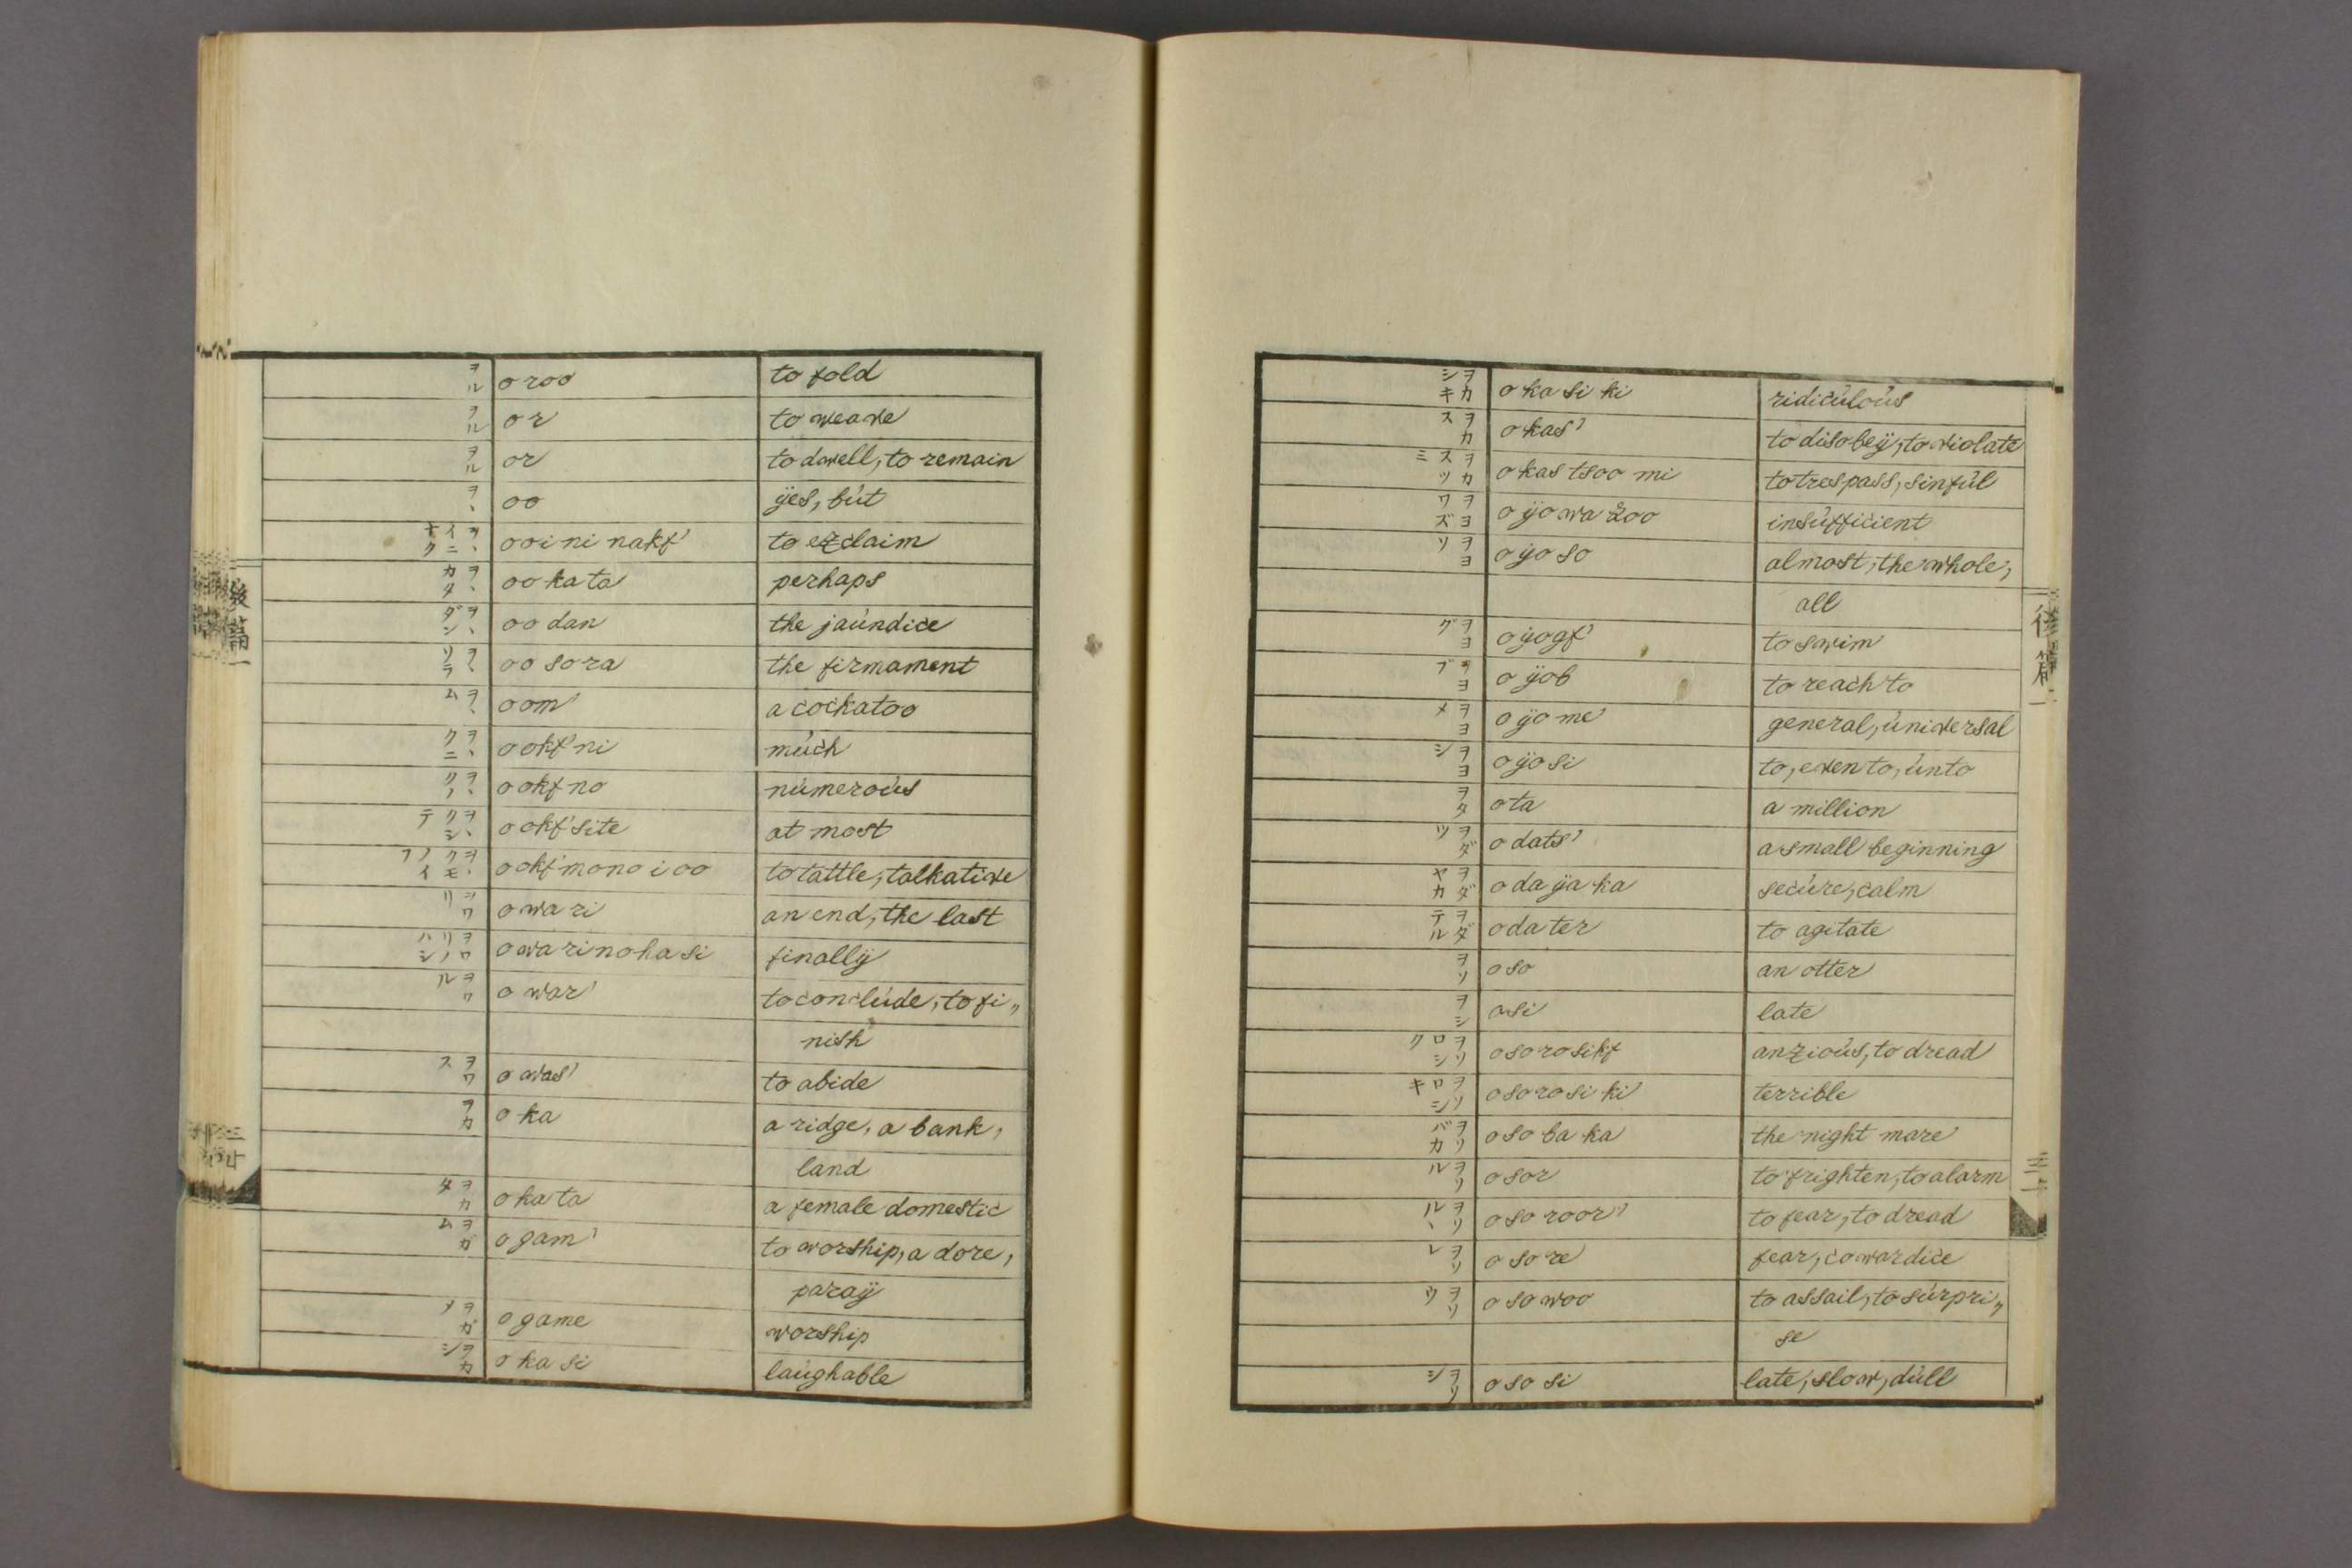 ヲル oroo to fold
ヲル or to weave
ヲル or to dwell, to remain
ヲヽ oo ÿes, bút
ヲヽイニナク ooi ni nakf' to exclaim
ヲヽカタ oo kata perhaps
ヲヽダン oo dan the jaúndice
ヲヽソラ oo sora the firmament
ヲヽム oom' a cockatoo
ヲヽクニ ookf'ni múch
ヲヽクノ ookf no númeroús
ヲヽクシテ ookf'site at most
ヲヽクモノイフ ookf'mono i oo to tattle, talkative
ヲワリ owari an end, the last
ヲワリノハシ owari no hasi finallÿ
ヲワル owar' to conclúde, to fi„
nish
ヲワス owas' to abide
ヲカ oka a ridge, a bank,
land
ヲカタ okata a female domestic
ヲガム ogam' to worship, a dore,
paraÿ
ヲガメ ogame worship
ヲカシ okasi laúghable
後篇
ヲカシキ okasi ki ridicúloús
ヲカス okas' to disobeÿ, to violate
ヲカスツミ okas tsoo mi to trespass, sinfúl
ヲヨワズ oÿowa zoo insúfficient
ヲヨソ oÿo so almost, the whole,
all
ヲヨグ oÿogf' to swim
ヲヨブ oÿob to reach to
ヲヨメ oÿo me general, úniversal
ヲヨシ oÿo si to, even to, únto
ヲタ ota a million
ヲダツ odats' a small beginning
ヲダヤカ odaÿaka secúre, calm
ヲダテル odater to agitate
ヲソ oso an otter
ヲシ osi late
ヲソロシク osorosikf anxioús, to dread
ヲソロシキ osorosi ki terrible
ヲソバカ oso baka the night mare
ヲソル osor to frighten, to alarm
ヲソルヽ oso roor' to fear, to dread
ヲソレ oso re fear, cowardice
ヲソウ oso woo to assail, to súrpri„
se
ヲソシ oso si late, slow, dúll
後篇